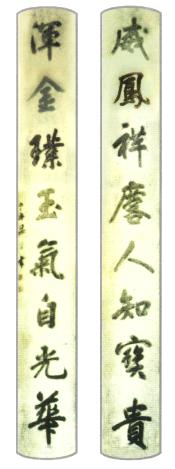 威鳳祥麐人知寶貴
渾金璞玉氣自光華